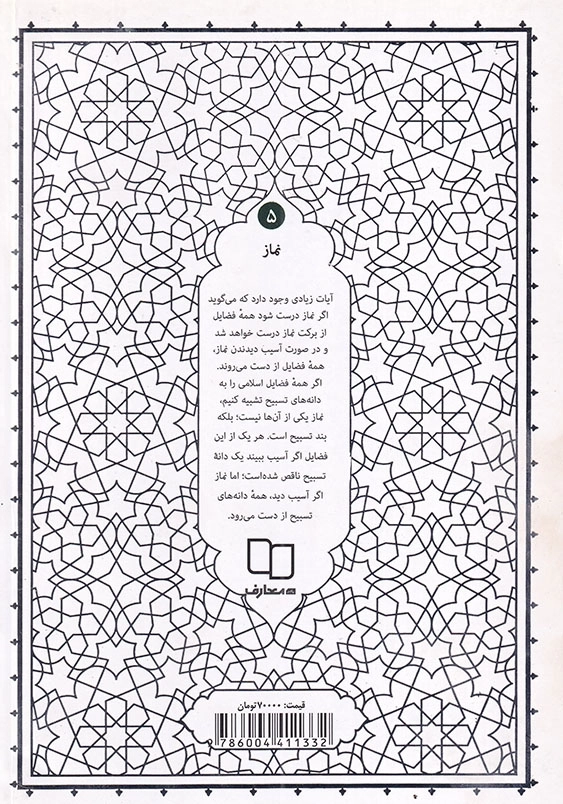 ۵
نماز
آیات زیادی وجود دارد که می‌گوید
اگر نماز درست شود همهٔ فضایل
از برکت نماز درست خواهد شد
و در صورت آسیب دیدندن نماز،
همهٔ فضایل از دست می‌روند.
اگر همهٔ فضایل اسلامی را به
دانه‌های تسبیح تشبیه کنیم،
نماز یکی از آن‌ها نیست؛ بلکه
بند تسبیح است. هر یک از این
فضایل اگر آسیب ببیند یک دانهٔ
تسبیح ناقص شده‌است؛ اما نماز
اگر آسیب دید، همهٔ دانه‌های
تسبیح از دست می‌رود.
معارف
قیمت: ۷۰۰۰۰ تومان
9 786004 411332